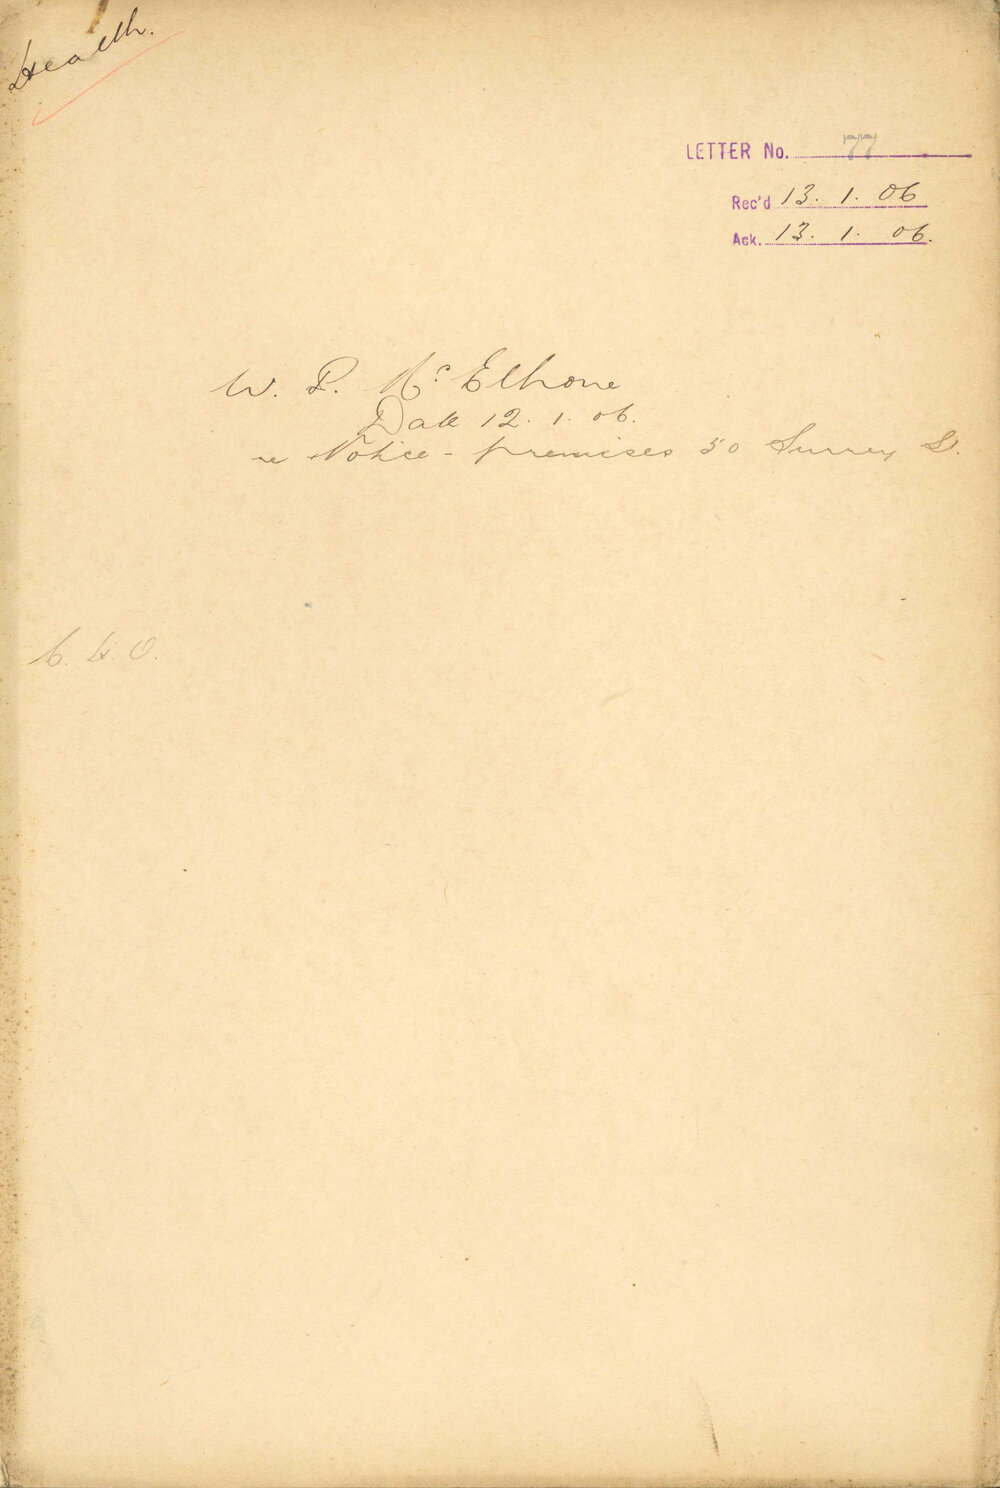 Health.
LETTER No. 77
Rec'd 13. 1. 06
Ack. 13. 1. 06.
W. P. McElhone
Date 12. 1. 06.
re Notice - premises 50 Surrey St.
C. H. O.